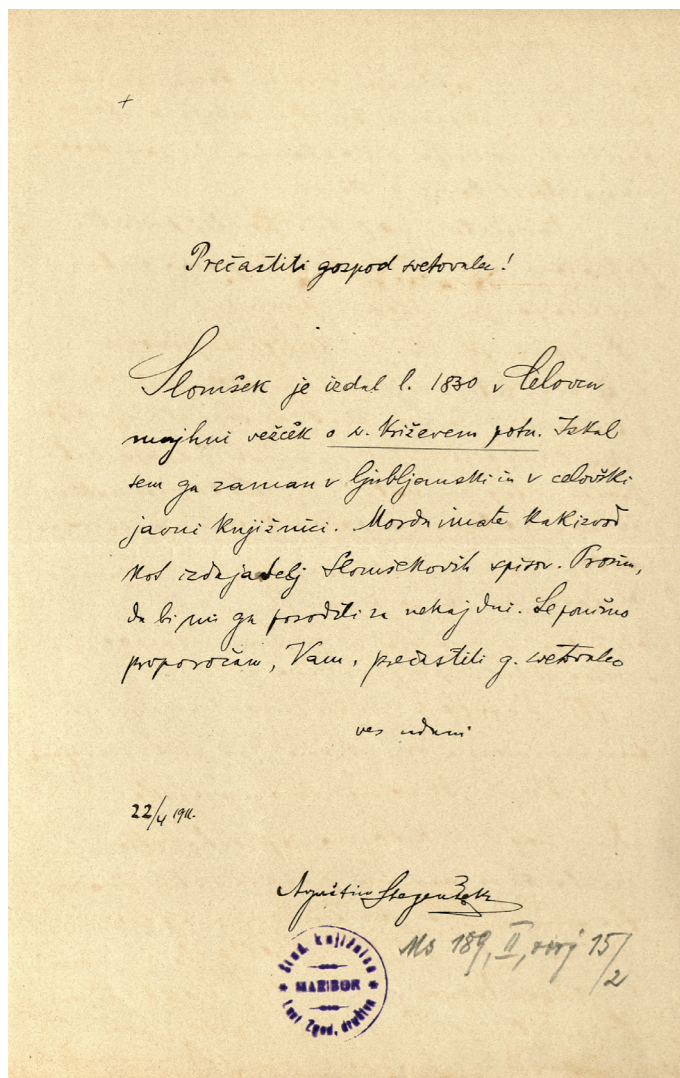 +
Prečastiti gospod svetovalec!
Slomšek je izdal l. 1830 v Celovcu
majhni vešček o sv. Križevem potu. Iskal
sem ga zaman v ljubljanski in v celovški
javni knjižnici. Morda imate kak izvod
kot izdajatelj Slomšekovih spisov. Prosim,
da bi mi ga posodili za nekaj dni. Se ponižno
proporočam, Vam, prečastiti g. svetovalec
ves udani
22/4 1911.
Avguštin Stegenšek
Ms 189, II, ovoj 15/2
Štud. knjižnica
MARIBOR
Last Zgod. društva